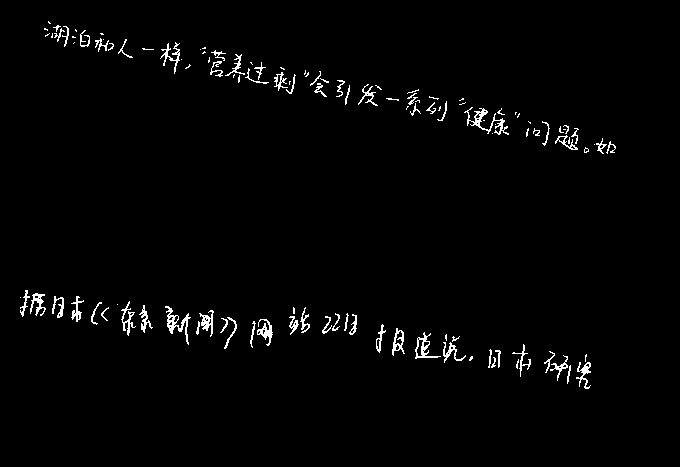 湖泊和人一样，“营养过剩”会引发一系列“健康”问题。如
据日本《东京新闻》网站22日报道说，日本研究